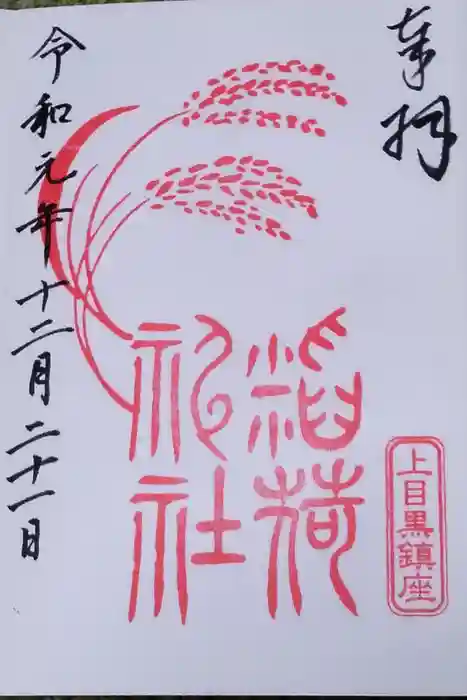 奉拝
稲荷
神社
上目黒鎮座
令和元年十二月二十一日